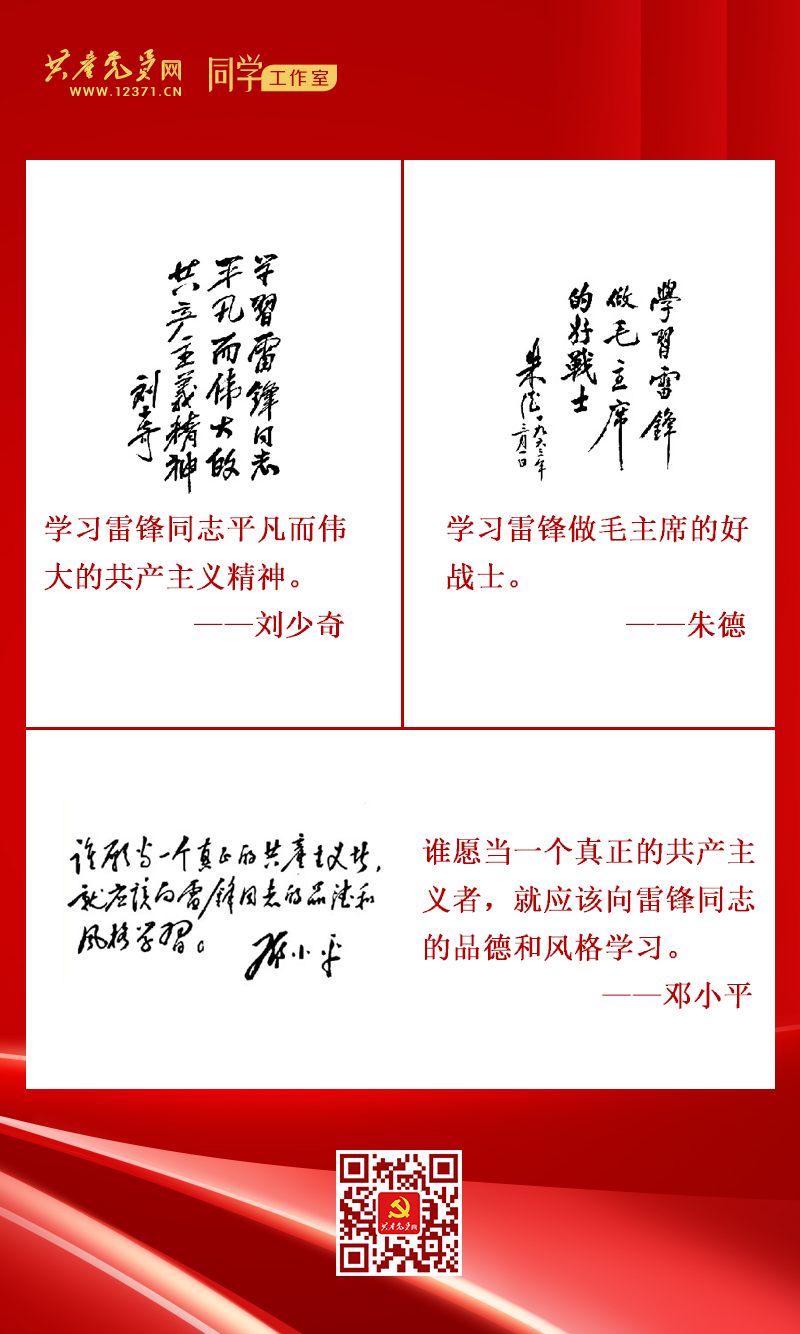 共产党员网
WWW.12371.CN
同学工作室
学习雷锋同志
平凡而伟大的
共产主义精神
刘少奇
学习雷锋同志平凡而伟
大的共产主义精神。
——刘少奇
學習雷鋒
做毛主席
的好戰士
朱德
一九六三年
三月一日
学习雷锋做毛主席的好
战士。
——朱德
谁愿当一个真正的共产主义者，
就应该向雷锋同志的品德和
风格学習。
邓小平
谁愿当一个真正的共产主
义者，就应该向雷锋同志
的品德和风格学习。
——邓小平
共产党员网